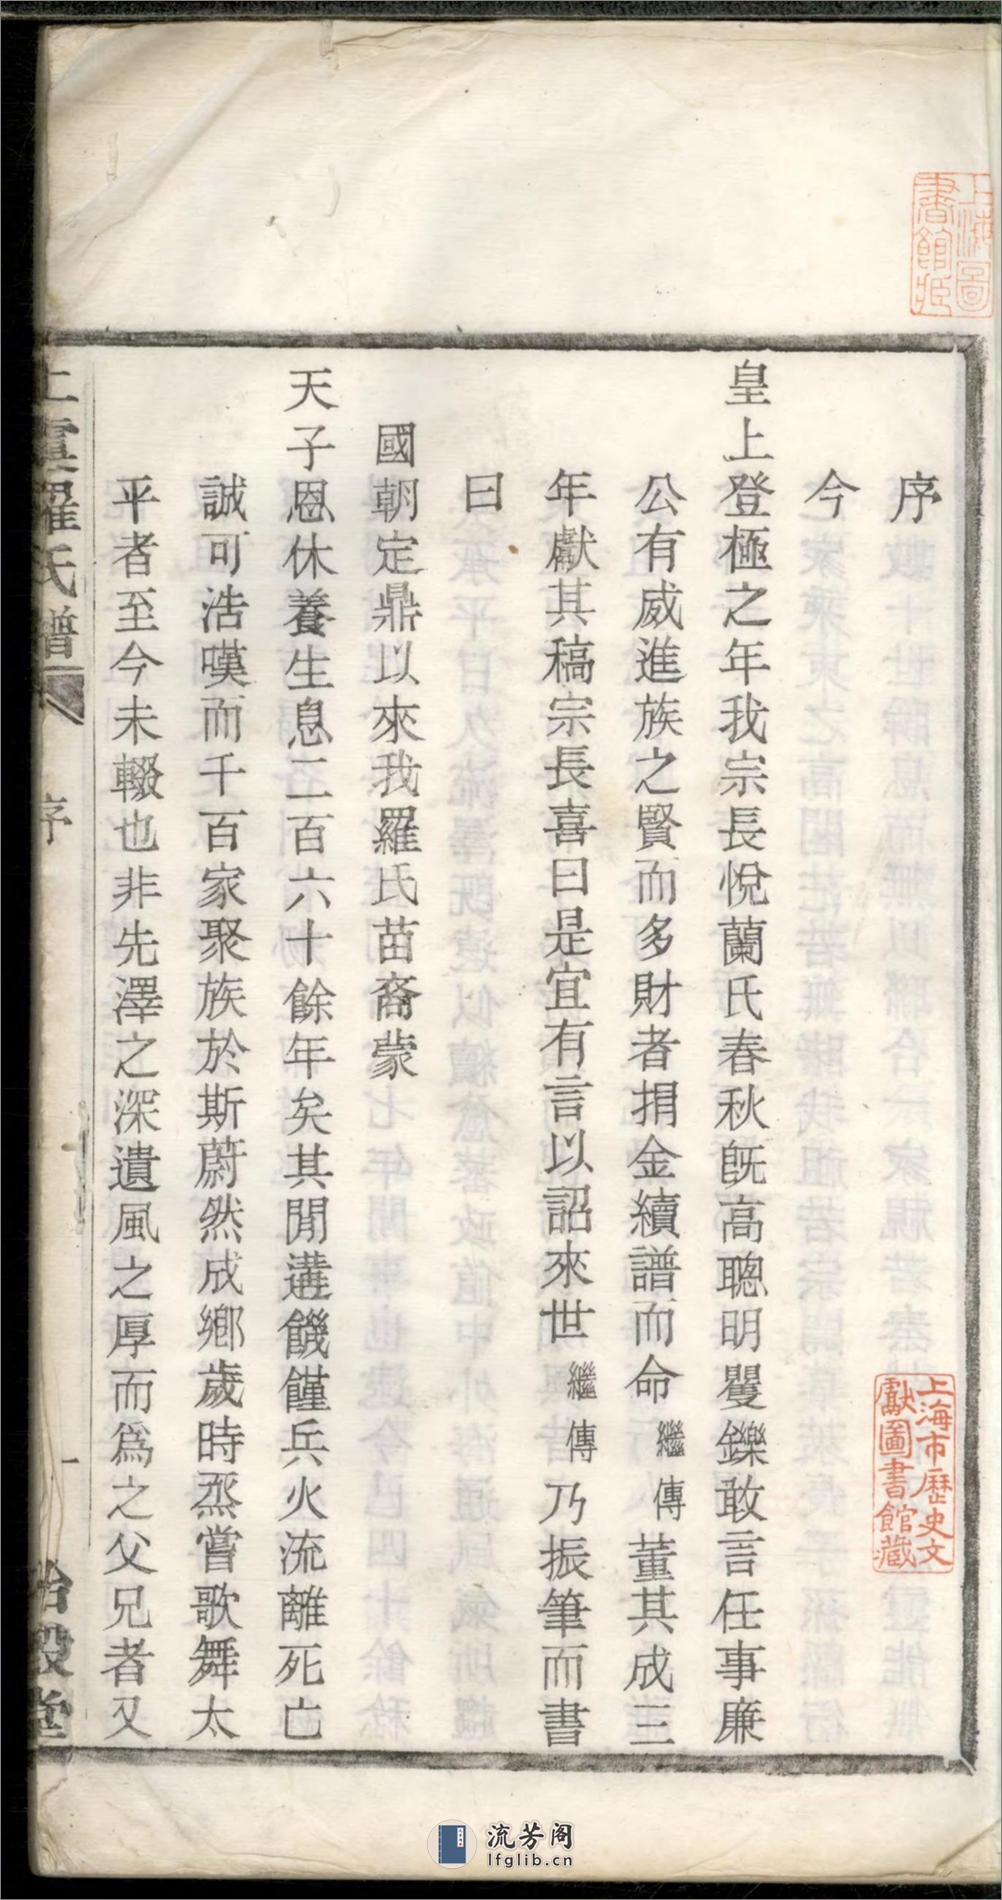 序
今
皇上登極之年我宗長悅蘭氏春秋旣高聰明矍鑠敢言任事廉
公有威進族之賢而多財者捐金續譜而命繼傳董其成三
年獻其稿宗長喜曰是宜有言以詔來世繼傳乃振筆而書
曰
國朝定鼎以來我羅氏苗裔蒙
天子恩休養生息二百六十餘年矣其閒遘饑饉兵火流離死亡
誠可浩嘆而千百家聚族於斯蔚然成鄉歲時烝嘗歌舞太
平者至今未輟也非先澤之深遺風之厚而爲之父兄者又
上虞羅氏譜 序 一
上海圖書館藏
上海市歷史文獻圖書館藏
流芳阁
lfglib.cn